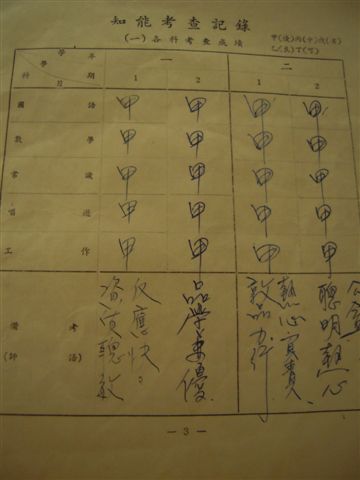 知能考查記錄
(一)各科考查成績
甲(優)丙(中)戊(劣)
乙(良)丁(可)
學年 學期 科目 一 二
1 2 1 2
國語 甲 甲 甲 甲
數學 甲 甲 甲 甲
常識 甲 甲 甲 甲
唱遊 甲 甲 甲 甲
工作 甲 甲 甲 甲
備考
(師語)
反應快。
資質聰敏
品學兼優
熱心負責
敦品力行
聰明熱心
— 3 —